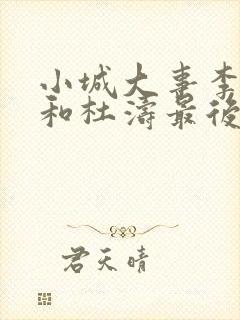 小城大喜李
和杜濤最後
君天晴